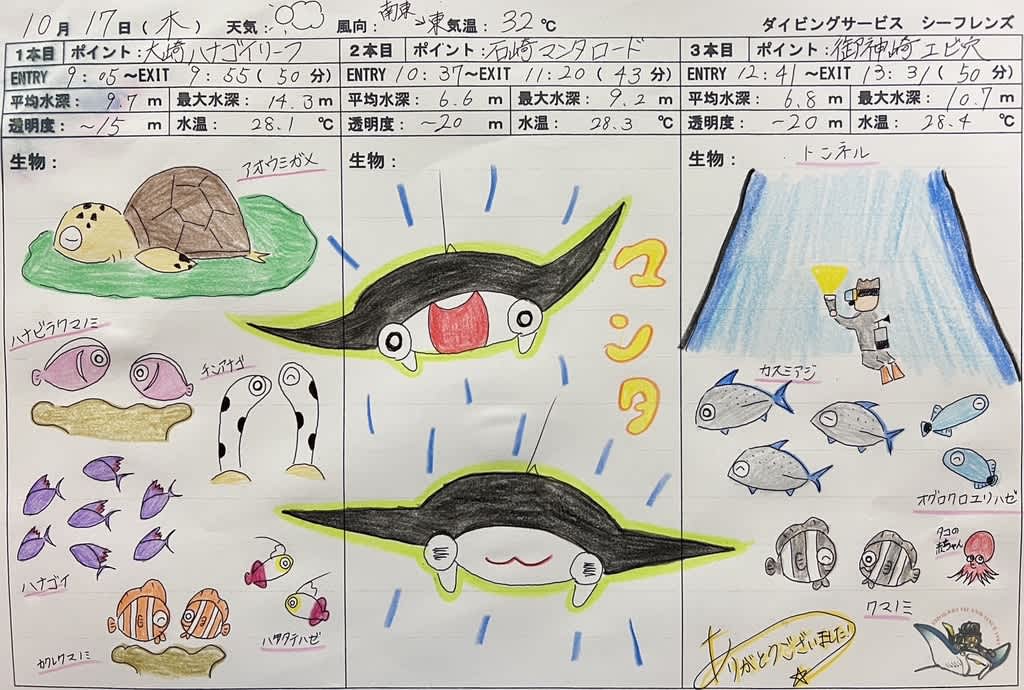 10月17日(木) 天気: 風向: 南東→東 気温: 32℃ ダイビングサービス シーフレンズ
1本目 ポイント: 大崎ハナゴイリーフ
ENTRY 9:05~EXIT 9:55(50分)
平均水深: 9.7m 最大水深: 14.3m
透明度: ~15m 水温: 28.1℃
生物:
アオウミガメ
ハナビラクマノミ
チンアナゴ
ハナゴイ
ハタタテハゼ
カクレクマノミ
2本目 ポイント: 石崎マンタロード
ENTRY 10:37~EXIT 11:20(43分)
平均水深: 6.6m 最大水深: 9.2m
透明度: ~20m 水温: 28.3℃
生物:
マンタ
3本目 ポイント: 御神崎エビ穴
ENTRY 12:41~EXIT 13:31(50分)
平均水深: 6.8m 最大水深: 10.7m
透明度: ~20m 水温: 28.4℃
生物:
トンネル
カスミアジ
オグロクロユリハゼ
タコの
赤ちゃん
クマノミ
ありがとうございました!